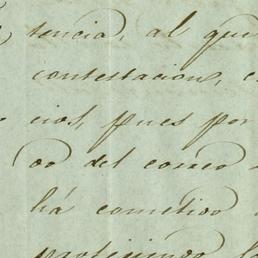 tencia, al que
contestacion, c
cios, pues por
do del correo
há cometido